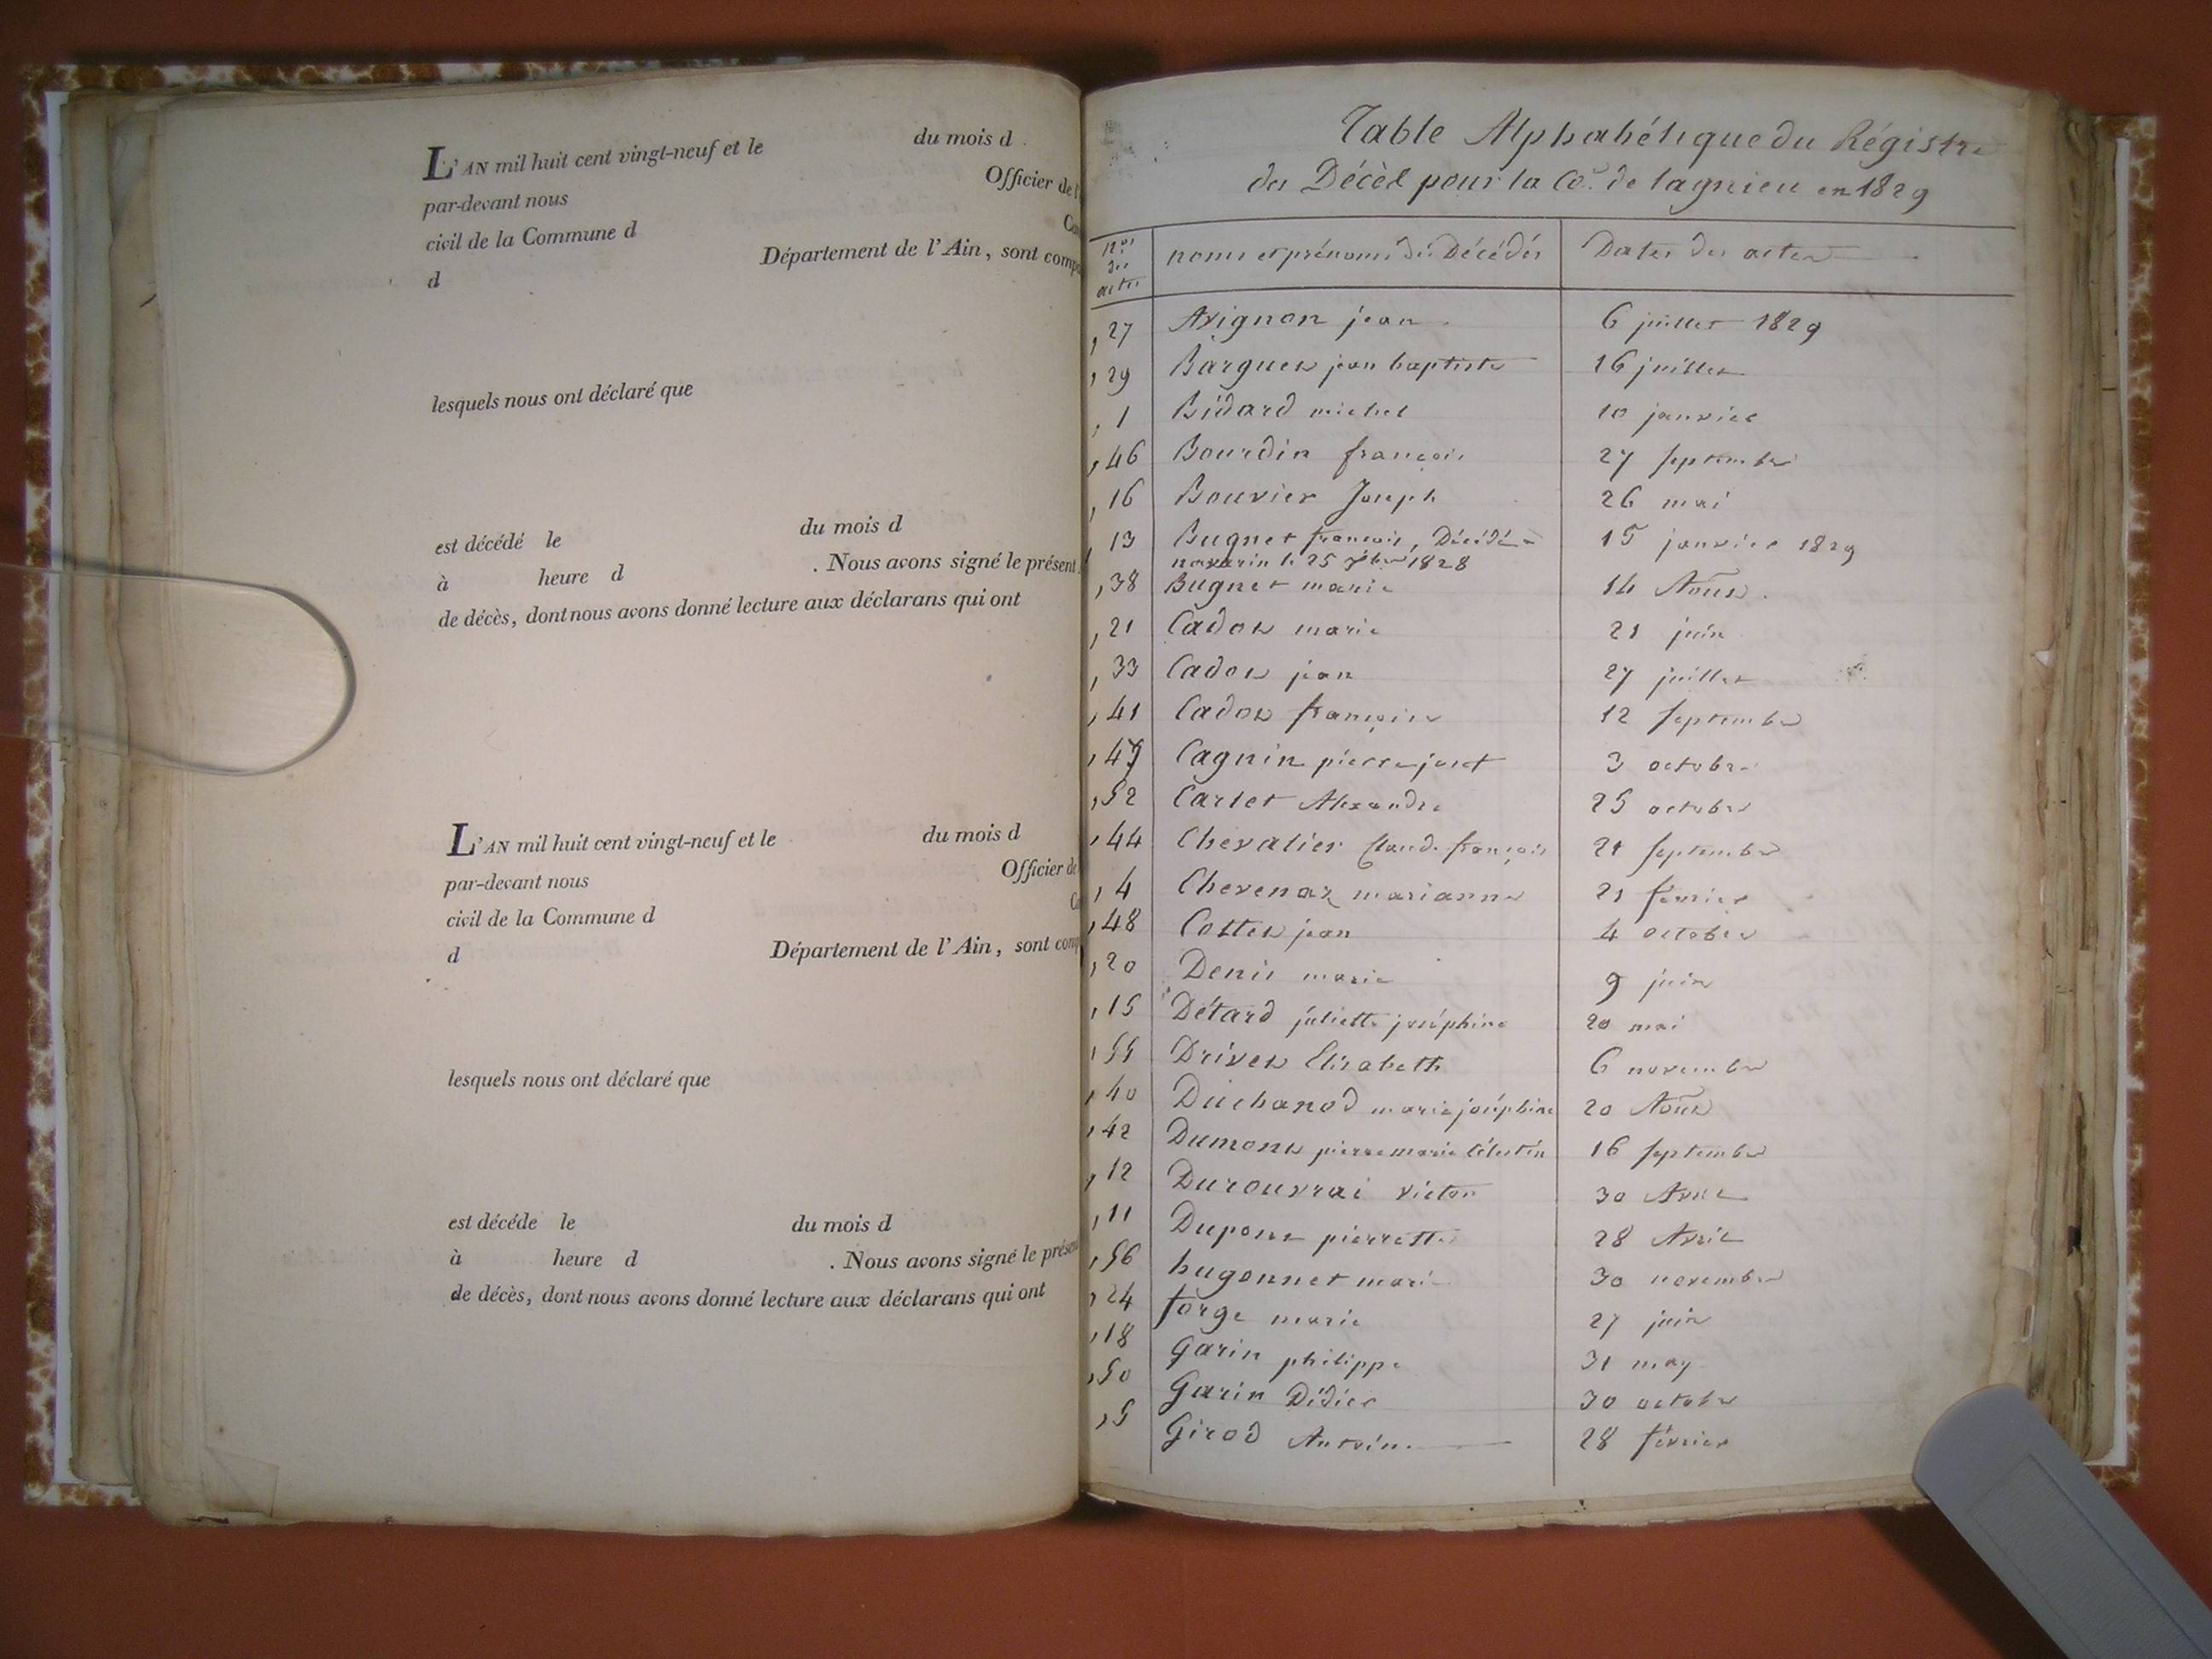 L'AN mil huit cent vingt-neuf et le du mois d
par-devant nous Officier de l'
civil de la Commune d
d Département de l'Ain, sont comp
lesquels nous ont déclaré que
est décédé le du mois d
à heure d . Nous avons signé le présent
de décès, dont nous avons donné lecture aux déclarans qui ont
L'AN mil huit cent vingt-neuf et le du mois d
par-devant nous Officier de
civil de la Commune d
d Département de l'Ain, sont com
lesquels nous ont déclaré que
est décéde le du mois d
à heure d . Nous avons signé le présen
de décès, dont nous avons donné lecture aux déclarans qui ont
Table Alphabétique du Régistre
des Décès pour la Co. de lagnieu en 1829
nos des actes noms et prénoms des Décédés Dates des actes
27 Avignon jean 6 juillet 1829
29 Barguet jean baptiste 16 juillet
1 Bidard michel 10 janvier
46 Bourdin françois 27 septembre
16 Bouvier Joseph 26 mai
13 Bugnet françois, Décédé à 15 janvier 1829
navarin le 25 1828
38 Bugnet marie 14 Août
21 Cadot marie 21 juin
33 Cadot jean 27 juillet
41 Cadot françoise 12 septembre
47 Cagnin pierre 3 octobre
52 Carlet Alexandre 25 octobre
44 Chevalier Claude françois 21 septembre
4 Chevenaz marianne 21 février
48 Cottet jean 4 octobre
20 Denis marie 9 juin
15 Détard juliette joséphine 20 mai
55 Drivet Elisabeth 6 novembre
40 Duchanod marie joséphine 20 Août
42 Dumont pierre marie célestin 16 septembre
12 Durouvrai victor 30 Avril
11 Dupont pierrette 28 Avril
56 hugonnet marie 30 novembre
24 forge marie 27 juin
18 Garin philippe 31 may
50 Garin Didier 30 octobre
5 Girod Antoine 28 février